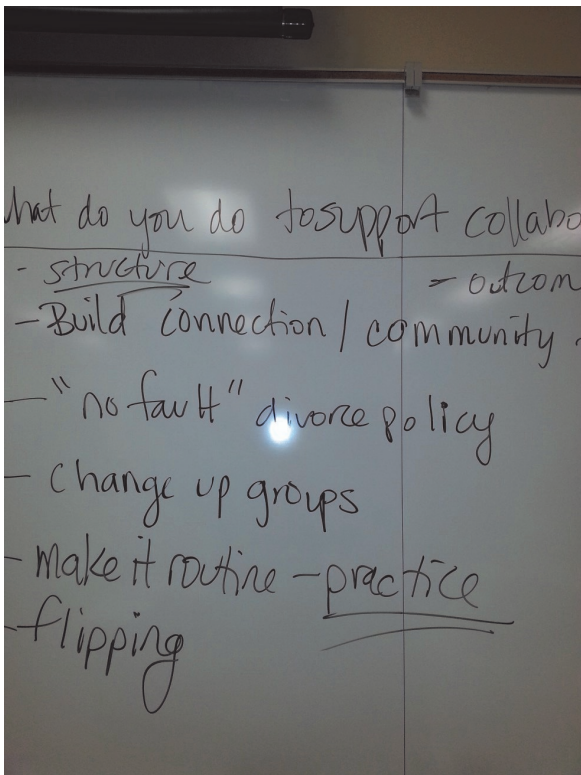 hat do you do to support collabo
- structure - outcom
- Build connection / community -
- "no fault" divorce policy
- change up groups
- make it routine - practice
- flipping